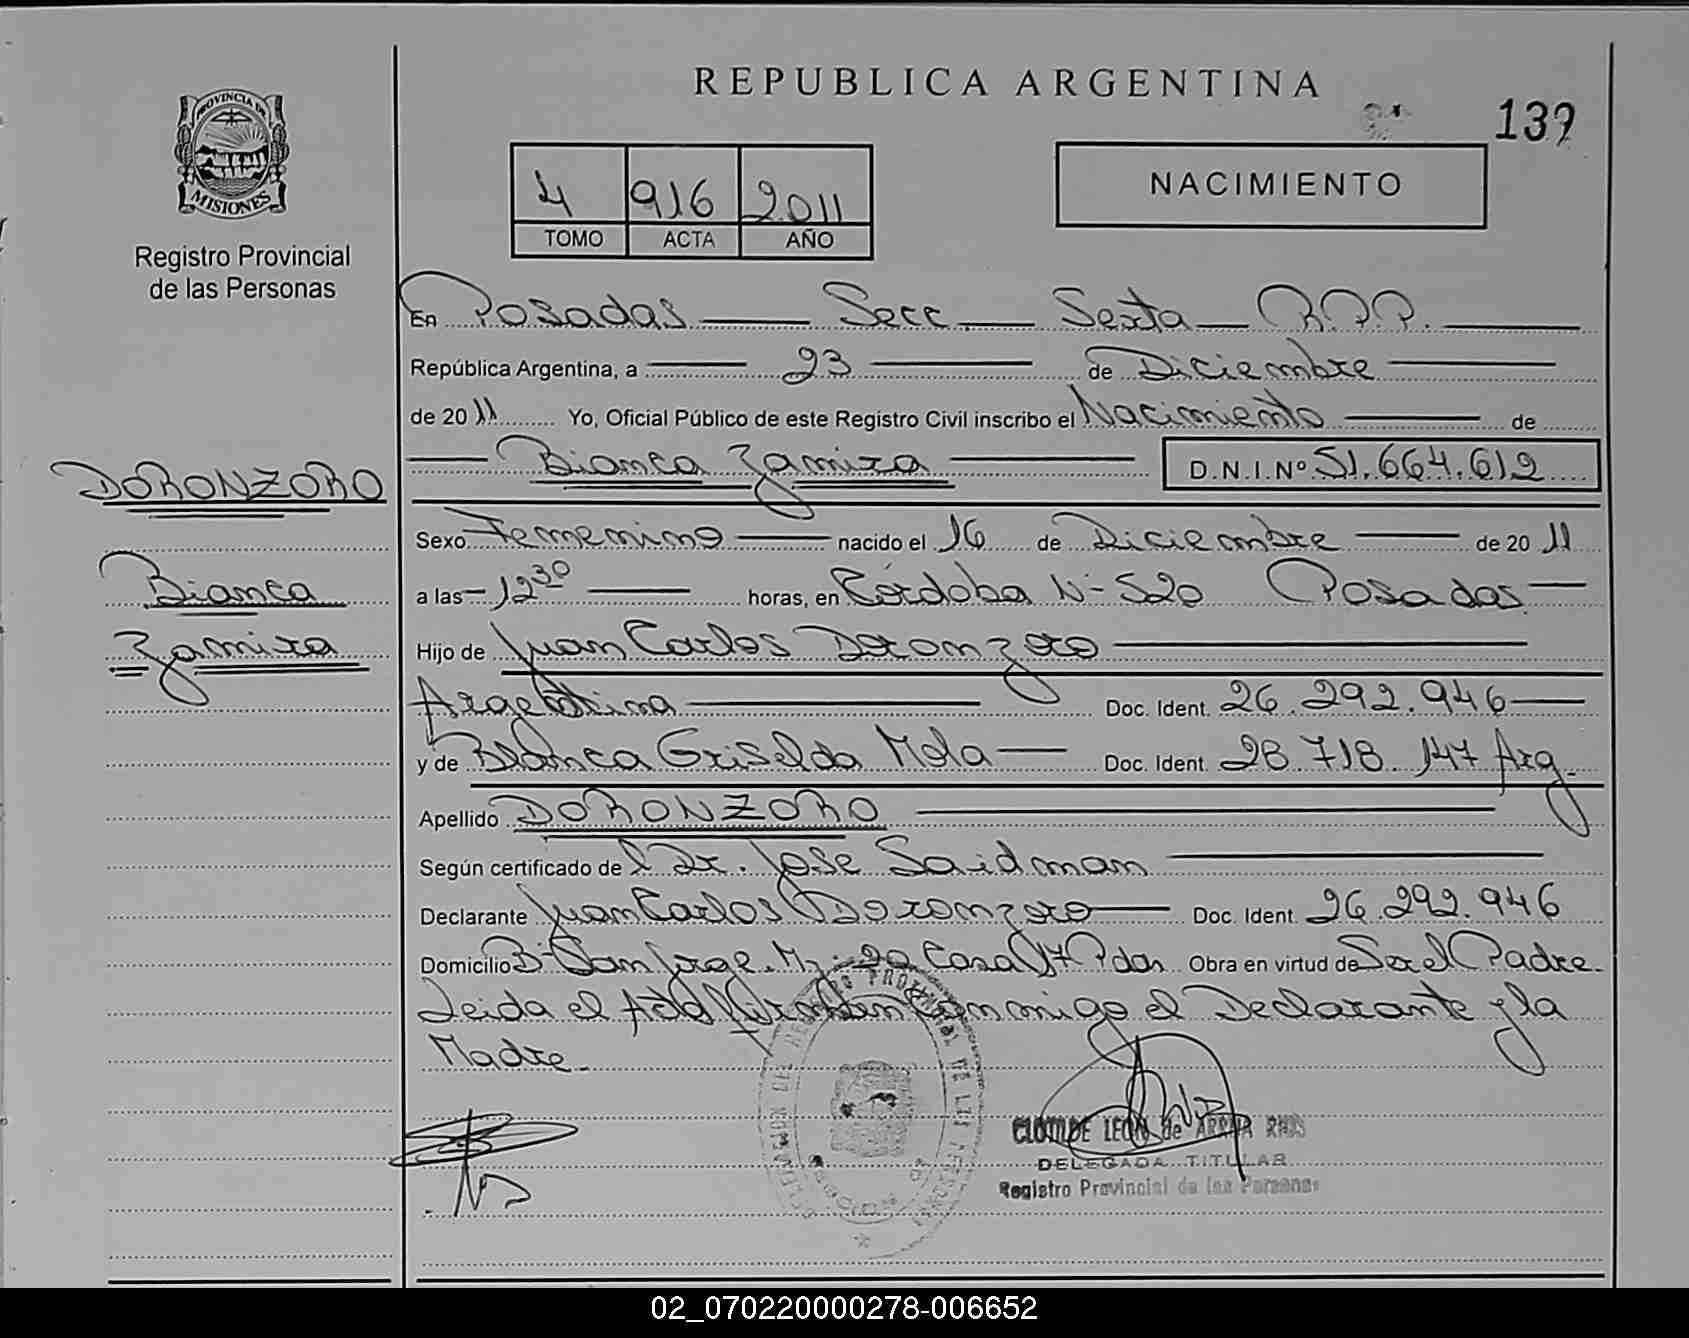 REPUBLICA ARGENTINA
139
PROVINCIA DE
MISIONES
Registro Provincial
de las Personas
4 916 2011
TOMO ACTA AÑO
NACIMIENTO
En Posadas Secc Sexta R.P.P.
República Argentina, a 23 de Diciembre
de 2011 Yo, Oficial Público de este Registro Civil inscribo el Nacimiento de
Bianca Zamira D.N.I.Nº 51.664.612
DORONZORO
Bianca
Zamira
Sexo Femenino nacido el 16 de Diciembre de 2011
a las 12 30 horas, en Córdoba Nº 520 Posadas
Hijo de Juan Carlos Doronzoro
Argentina Doc. Ident. 26.292.946
y de Blanca Griselda Mola Doc. Ident. 28.718.147 Arg.
Apellido DORONZORO
Según certificado del Dr. Jose Saidman
Declarante Juan Carlos Doronzoro Doc. Ident. 26.292.946
Domicilio Bº San Jorge. Mz. Casa Pdas Obra en virtud de Ser el Padre.
Leida el Acta firman conmigo el Declarante y la
Madre.
CLOTILDE LEON de ARRUA RIOS
DELEGADA TITULAR
Registro Provincial de las Personas
02_070220000278-006652